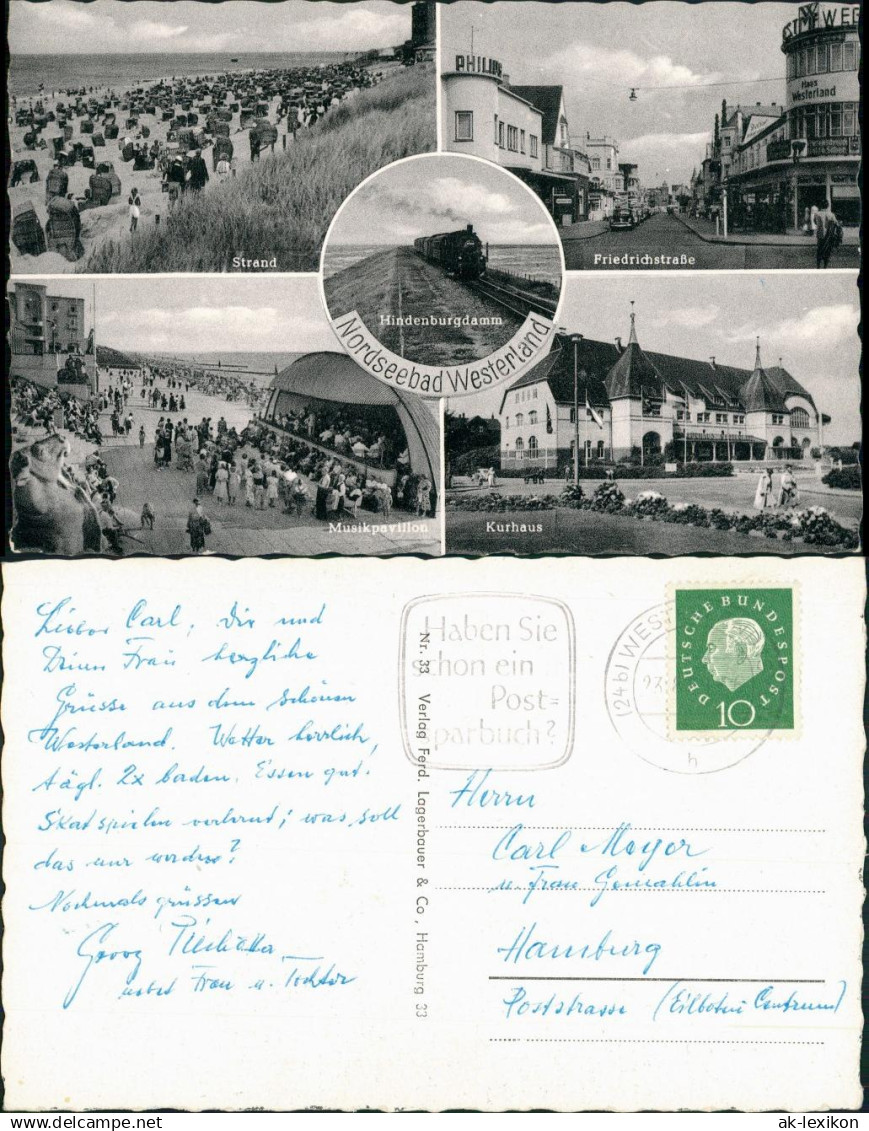 PHILIPS
Haus
Westerland
Strand
Friedrichstraße
Hindenburgdamm
Nordseebad Westerland
Musikpavillon
Kurhaus
Lieber Carl, Dir und
Deiner Frau herzliche
Grüsse aus dem schönen
Westerland. Wetter herrlich,
tägl. 2x baden. Essen gut.
Skatspielen verlernt; was soll
das nur werden?
Nochmals grüssen
Georg
nebst Frau u. Tochter
Nr. 33 Verlag Ferd. Lagerbauer & Co, Hamburg 33
Haben Sie
schon ein
Post=
sparbuch?
(24b) WEST
h
DEUTSCHE BUNDESPOST
10
Herrn
Carl Meyer
u. Frau Gemahlin
Hamburg
Poststrasse (Eilboten Centrum)
ak-ansichtskarten.de
ak-lexikon